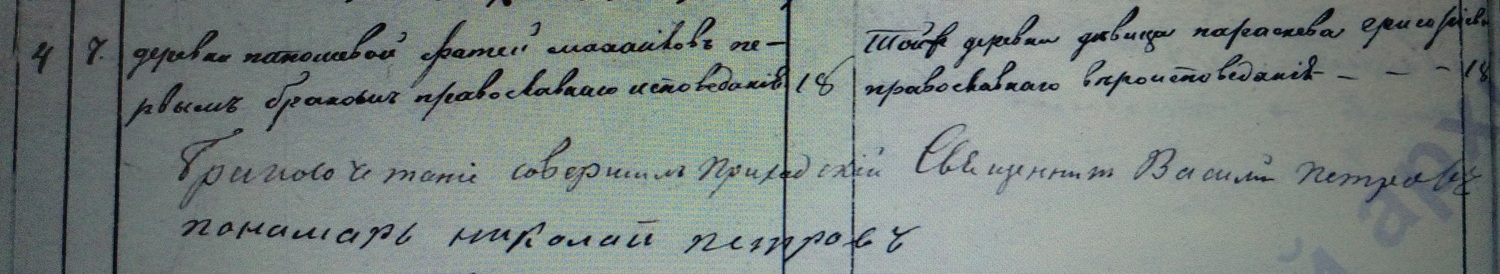 4 7. деревни папошевой Фатей малаиховъ пе-
рвымъ бракомъ православнаго исповеданія 18
Тойже деревни девица параскева григориева
православнаго вероисповеданія - - - 18
Бракосочетаніе совершилъ Приходскій Священникъ Василий петровъ
понамарь николай петровъ